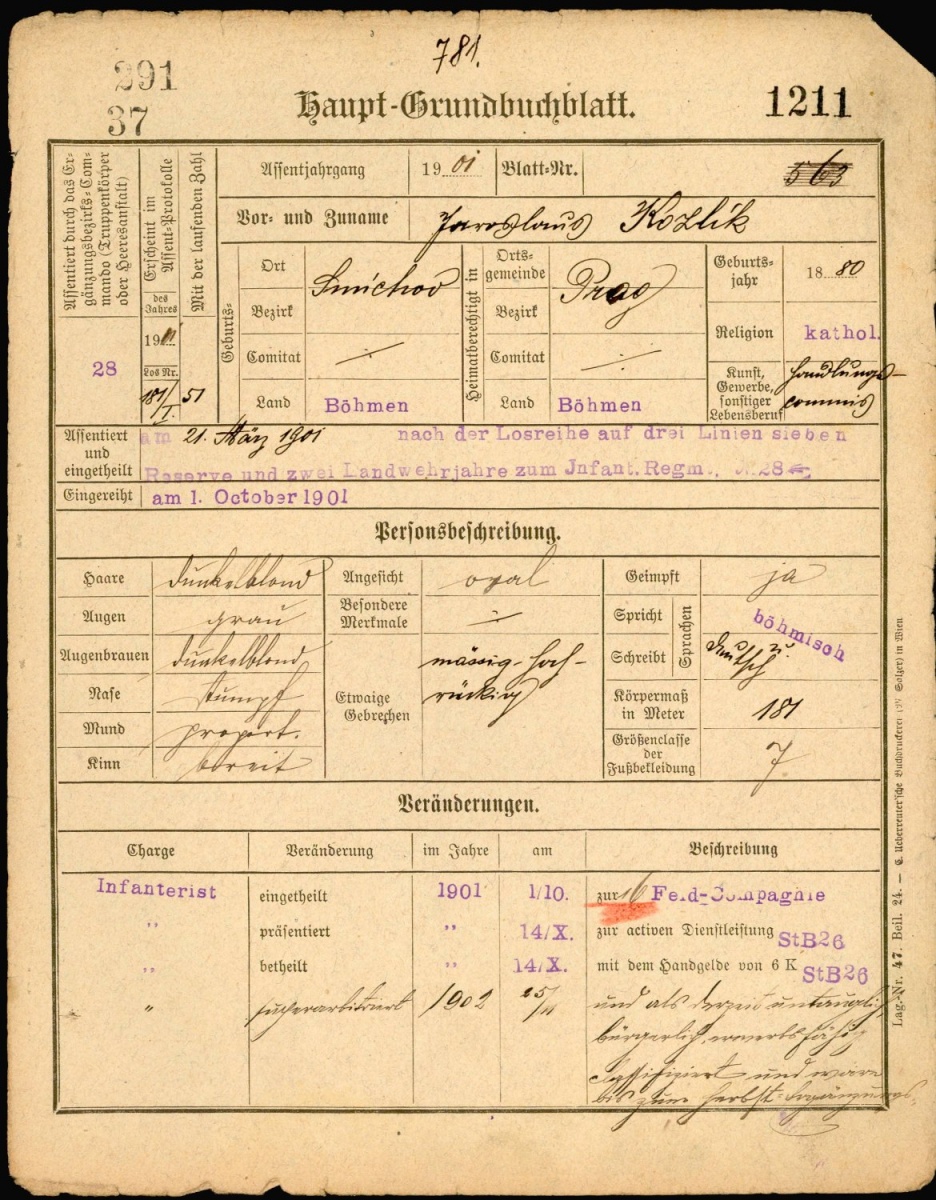 781.
291
37
Haupt-Grundbuchblatt.
1211
Assentiert durch das Er-
gänzungsbezirks-Com-
mando (Truppenkörper
oder Heeresanstalt)
28
Erscheint im
Assent-Protokolle
des
Jahres
1901
Los Nr.
181/I
Mit der laufenden Zahl
51
Assentjahrgang 1901 Blatt-Nr. 563
Vor- und Zuname Jaroslaus Kozlik
Geburts-
Ort Smichov
Bezirk
Comitat ÷
Land Böhmen
Heimatberechtigt in
Orts-
gemeinde Prag
Bezirk
Comitat ÷
Land Böhmen
Geburts-
jahr 1880
Religion kathol.
Kunst,
Gewerbe,
sonstiger
Lebensberuf
Handlungs-
commis
Assentiert
und
eingetheilt
am 21. März 1901 nach der Losreihe auf drei Linien sieben
Reserve und zwei Landwehrjahre zum Jnfant. Regm. 28
Eingereiht am 1. October 1901
Personsbeschreibung.
Haare dunkelblond
Augen grau
Augenbrauen dunkelblond
Nase stumpf
Mund proport.
Kinn breit
Angesicht oval
Besondere
Merkmale ÷
Etwaige
Gebrechen
mässig-hoh-
rückig
Geimpft ja
Spricht
Schreibt
Sprachen
böhmisch
u.
deutsch
Körpermaß
in Meter 181
Größenclasse
der
Fußbekleidung 7
Veränderungen.
Charge Veränderung im Jahre am Beschreibung
Infanterist eingetheilt 1901 1/10. zur 16 Feld-Compagnie
" präsentiert " 14/X. zur activen Dienstleistung StB26
" betheilt " 14/X. mit dem Handgelde von 6 K StB26
" superarbitriert 1902 25/11 und als derzeit untauglich
bürgerlich erwerbsfähig
classifiziert und wäre
bis zum Herbst-Ergänzungs-
Lag.-Nr. 47. Beil. 24. — C. Ueberreuter'sche Buchdruckerei (M. Salzer) in Wien